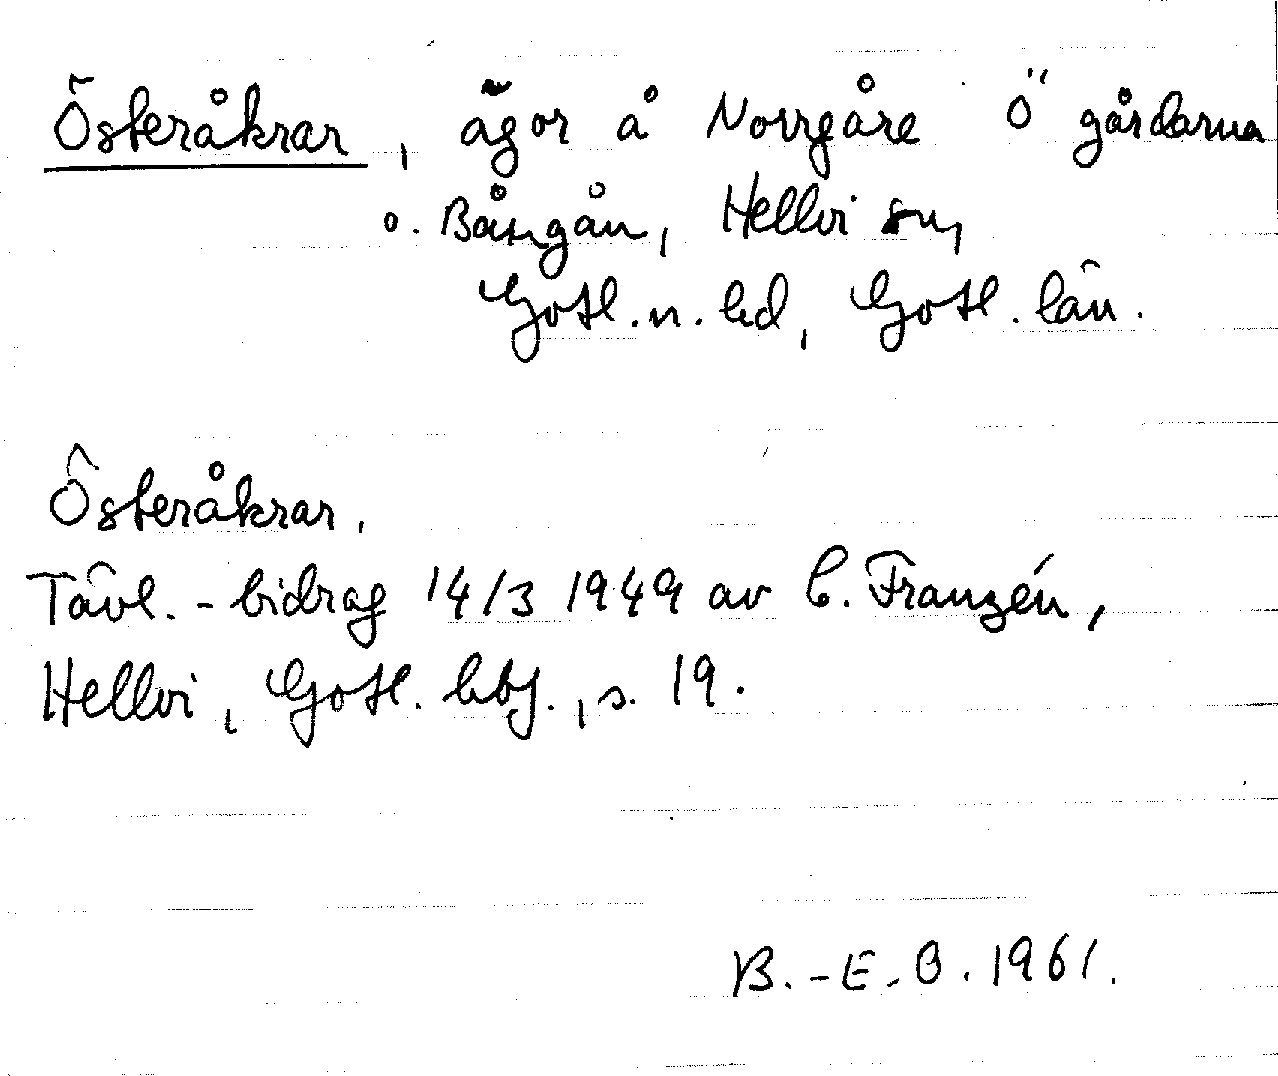 Österåkrar, ägor å Norrgåre Ö gårdarna
o. Bångån, Hellvi sn,
Gotl. n. hd, Gotl. län.
Österåkrar.
Tävl.-bidrag 14/3 1949 av C. Franzén,
Hellvi, Gotl. hbf., s. 19.
B.-E. O. 1961.